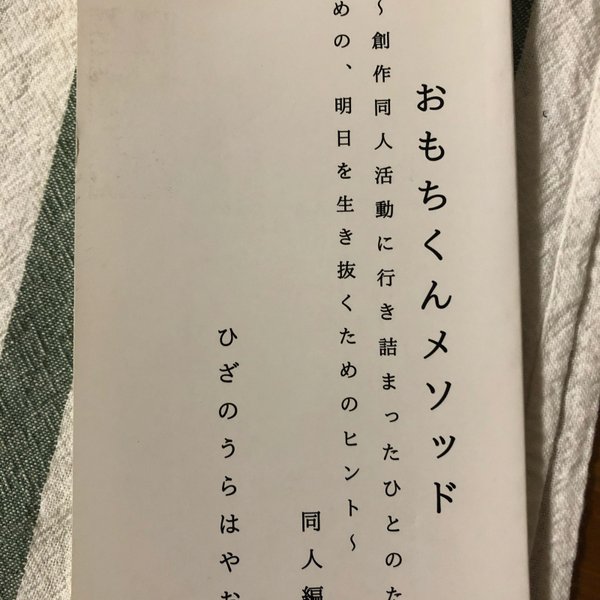 おもちくんメソッド
～創作同人活動に行き詰まったひとのた
めの、明日を生き抜くためのヒント～
同人編
ひざのうらはやお